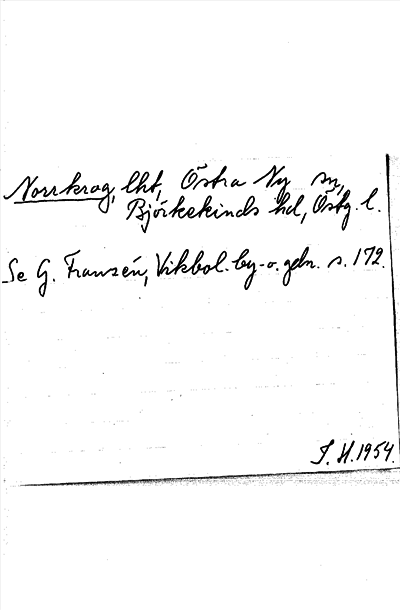 Norrkrog, lht, Östra Ny sn,
Björkekinds hd, Östg. l.
Se G. Franzén, Vikbol. by- o. gdn. s. 172.
S. H. 1954.